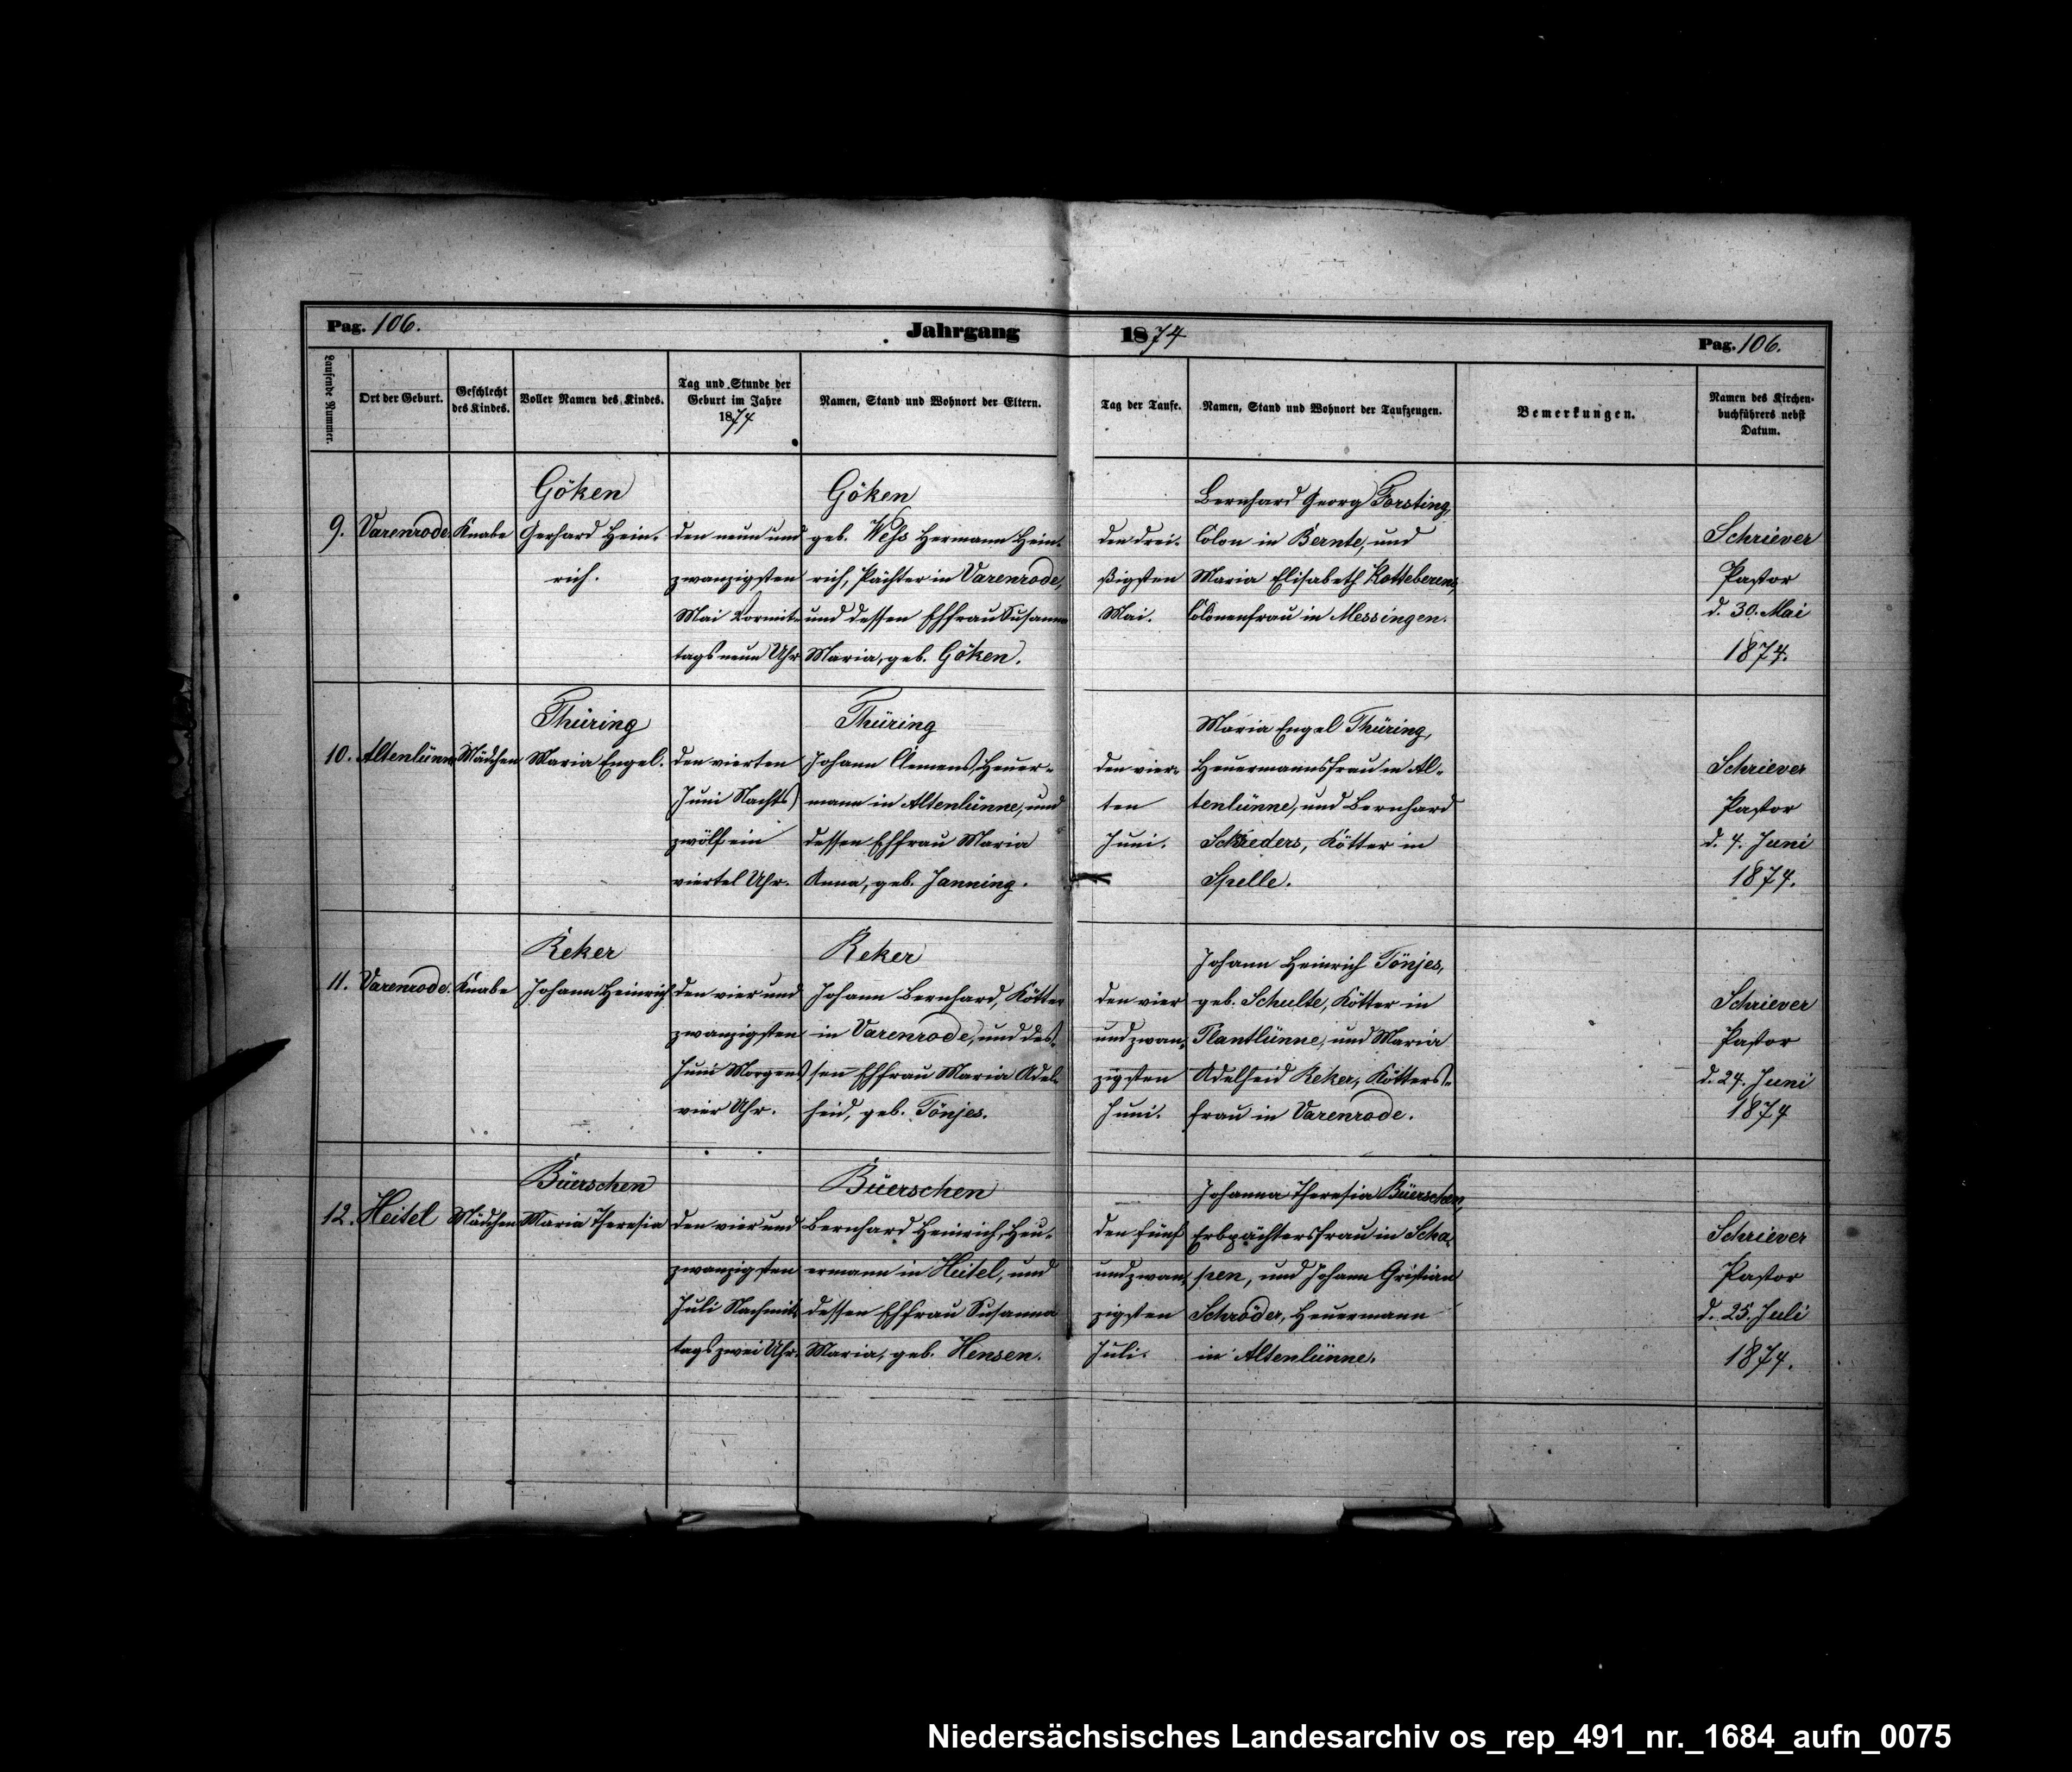 Pag. 106.
Jahrgang 1874
Pag. 106.
Laufende Nummer.
Ort der Geburt.
Geschlecht
des Kindes.
Voller Namen des Kindes.
Tag und Stunde der
Geburt im Jahre
1874
Namen, Stand und Wohnort der Eltern.
Tag der Taufe.
Namen, Stand und Wohnort der Taufzeugen.
Bemerkungen.
Namen des Kirchen-
buchführers nebst
Datum.
9.
Varenrode.
Knabe
Göken
Gerhard Hein-
rich.
den neun und
zwanzigsten
Mai Vormit-
tags neun Uhr
Göken
geb. Weß Hermann Hein-
rich, Pächter in Varenrode,
und dessen Ehfrau Susanna
Maria, geb. Göken.
den drei-
ßigsten
Mai.
Bernhard Georg Forsting,
Colon in Bernte, und
Maria Elisabeth Kotteberens,
Colonenfrau in Messingen.
Schriever
Pastor
d. 30. Mai
1874.
10.
Altenlünne
Mädchen
Thüring
Maria Engel.
den vierten
Juni Nachts
zwölf ein
viertel Uhr.
Thüring
Johann Clemens, Heuer-
mann in Altenlünne, und
dessen Ehfrau Maria
Anna, geb. Janning.
den vier-
ten
Juni.
Maria Engel Thüring,
Heuermannsfrau in Al-
tenlünne, und Bernhard
Schreders, Kötter in
Spelle.
Schriever
Pastor
d. 4. Juni
1874.
11.
Varenrode.
Knabe
Reker
Johann Heinrich
den vier und
zwanzigsten
Juni Morgens
vier Uhr.
Reker
Johann Bernhard, Kötter
in Varenrode, und des-
sen Ehfrau Maria Adel-
heid, geb. Tönjes.
den vier
und zwan-
zigsten
Juni.
Johann Heinrich Tönjes,
geb. Schulte, Kötter in
Plantlünne, und Maria
Adelheid Reker, Kötters-
frau in Varenrode.
Schriever
Pastor
d. 24. Juni
1874
12.
Heitel
Mädchen
Büerschen
Maria Theresia
den vier und
zwanzigsten
Juli Nachmit-
tags zwei Uhr.
Büerschen
Bernhard Heinrich, Heu-
ermann in Heitel, und
dessen Ehfrau Susanna
Maria, geb. Hensen.
den fünf
und zwan-
zigsten
Juli.
Johanna Theresia Büerschen,
Erbpächtersfrau in Scha-
pen, und Johann Gristian
Schröder, Heuermann
in Altenlünne.
Schriever
Pastor
d. 25. Juli
1874.
Niedersächsisches Landesarchiv os_rep_491_nr._1684_aufn_0075